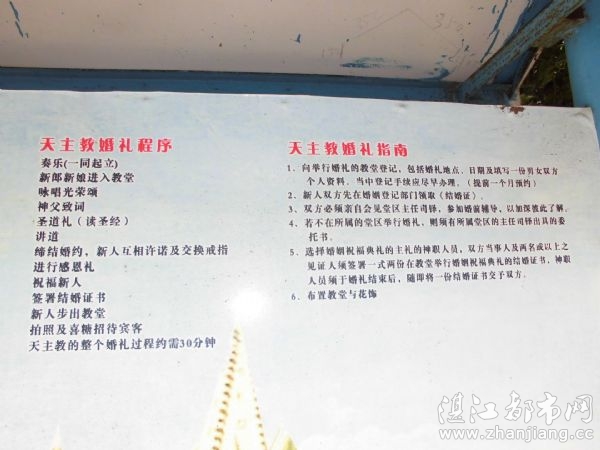 天主教婚礼程序
奏乐(一同起立)
新郎新娘进入教堂
咏唱光荣颂
神父致词
圣道礼（读圣经）
讲道
缔结婚约，新人互相许诺及交换戒指
进行感恩礼
祝福新人
签署结婚证书
新人步出教堂
拍照及喜糖招待宾客
天主教的整个婚礼过程约需30分钟
天主教婚礼指南
1、向举行婚礼的教堂登记，包括婚礼地点，日期及填写一份男女双方
个人资料。当中登记手续应尽早办理。（提前一个月预约）
2、新人双方先在婚姻登记部门领取《结婚证》。
3、双方必须亲自会见堂区主任司铎，参加婚前辅导，以加深彼此了解。
4、若不在所属的堂区举行婚礼，则须有所属堂区的主任司铎出具的委
托书。
5、选择婚姻祝福典礼的主礼的神职人员，双方当事人及两名或以上之
见证人须签署一式两份在教堂举行婚姻祝福典礼的结婚证书，神职
人员须于婚礼结束后，随即将一份结婚证书交予双方。
6、布置教堂与花饰
湛江都市网
www.zhanjiang.cc